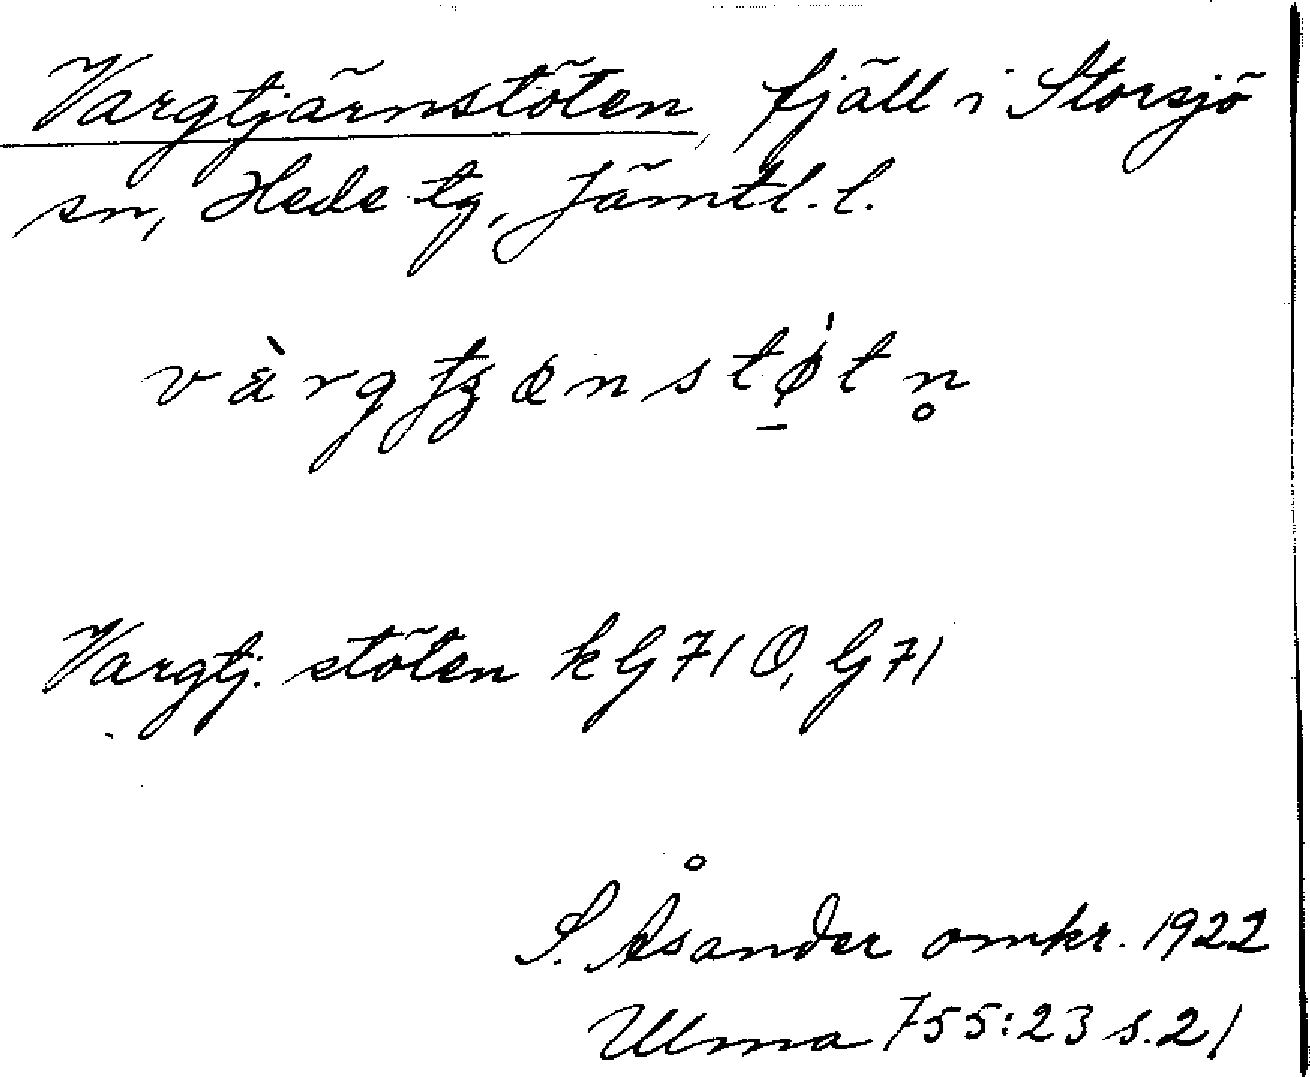 Vargtjärnstöten, fjäll i Storsjö
sn, Hede tg, Jämtl. l.
vàrgʈʂænstøtn̥
Vargtj. stöten k G 71 O, G 71
S. Åsander omkr. 1922
Ulma 755:23 s. 21